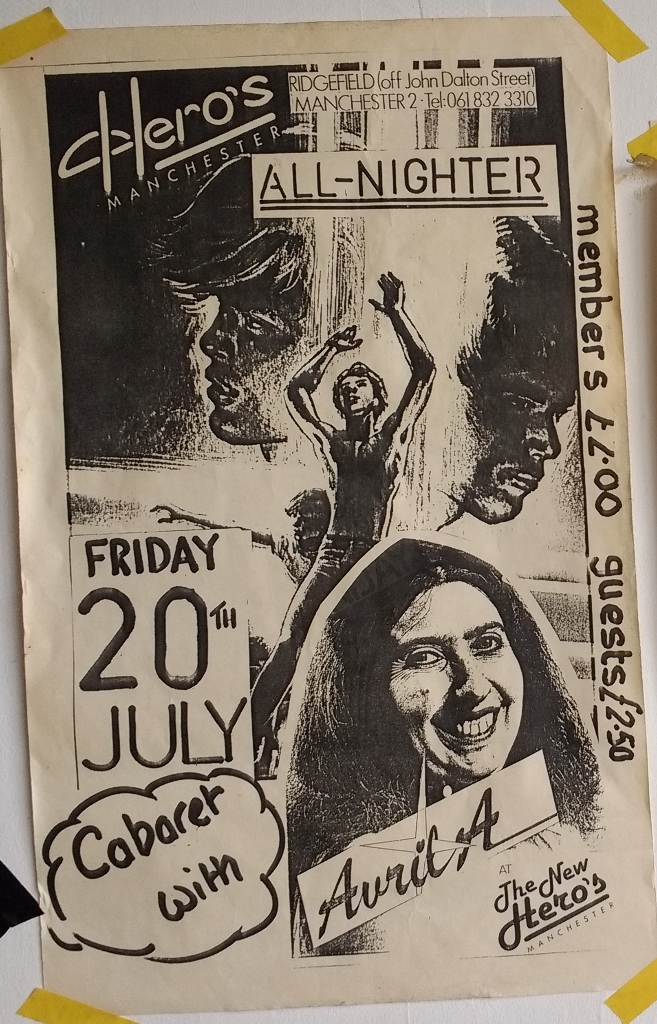 Hero's
MANCHESTER
RIDGEFIELD (off John Dalton Street)
MANCHESTER 2 · Tel: 061 832 3310
ALL-NIGHTER
members £2.00 guests £2.50
FRIDAY
20TH
JULY
Cabaret
with
Avril A
AT
The New
Hero's
MANCHESTER